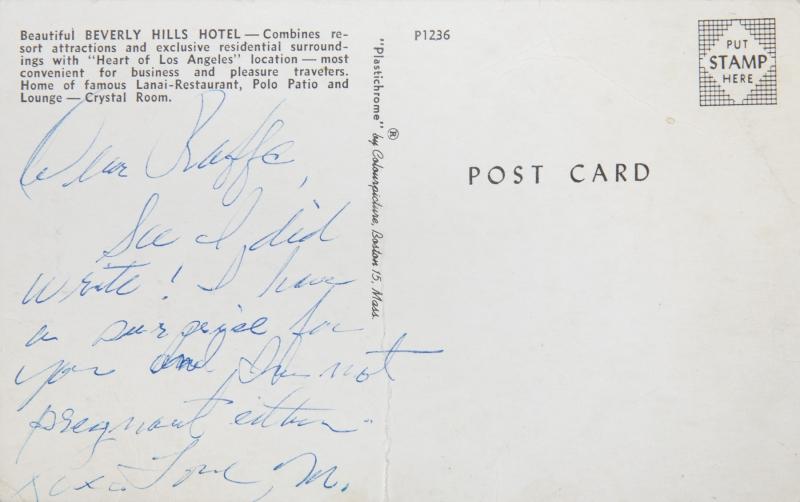 Beautiful BEVERLY HILLS HOTEL — Combines re-
sort attractions and exclusive residential surround-
ings with "Heart of Los Angeles" location — most
convenient for business and pleasure travelers.
Home of famous Lanai-Restaurant, Polo Patio and
Lounge — Crystal Room.
Dear Raffe,
See I did
write! I have
a surprise for
you and I'm not
pregnant either.
xoxo Love, M.
"Plastichrome" ® by Colourpicture, Boston 15, Mass.
P1236
PUT
STAMP
HERE
POST CARD